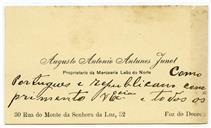 Augusto Antonio Antunes Junot
Proprietario da Mercearia Leão do Norte
Como
Portugues e republicano com
primento V Ex.cia e todos os
30 Rua do Monte da Senhora da Luz, 32
Foz do Douro